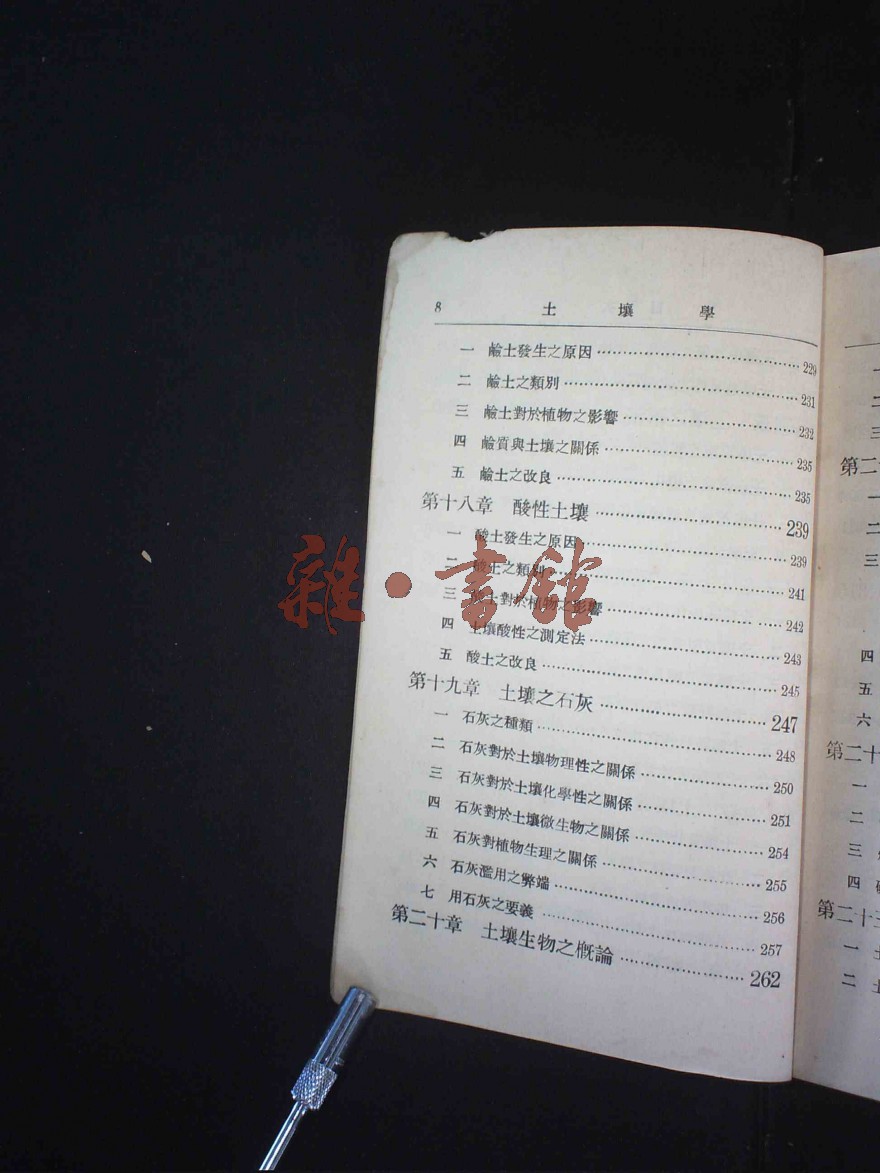 8 土壤學
一 鹼土發生之原因 229
二 鹼土之類別 231
三 鹼土對於植物之影響 232
四 鹼質與土壤之關係 235
五 鹼土之改良 235
第十八章 酸性土壤 239
一 酸土發生之原因 239
二 酸土之類別 241
三 酸土對於植物之影響 242
四 土壤酸性之測定法 243
五 酸土之改良 245
第十九章 土壤之石灰 247
一 石灰之種類 248
二 石灰對於土壤物理性之關係 250
三 石灰對於土壤化學性之關係 251
四 石灰對於土壤微生物之關係 254
五 石灰對植物生理之關係 255
六 石灰濫用之弊端 256
七 用石灰之要義 257
第二十章 土壤生物之概論 262
雜·書館
一
二
三
第二
一
二
三
四
五
六
第二十
一
二
三
四
第二十三
一 土
二 土